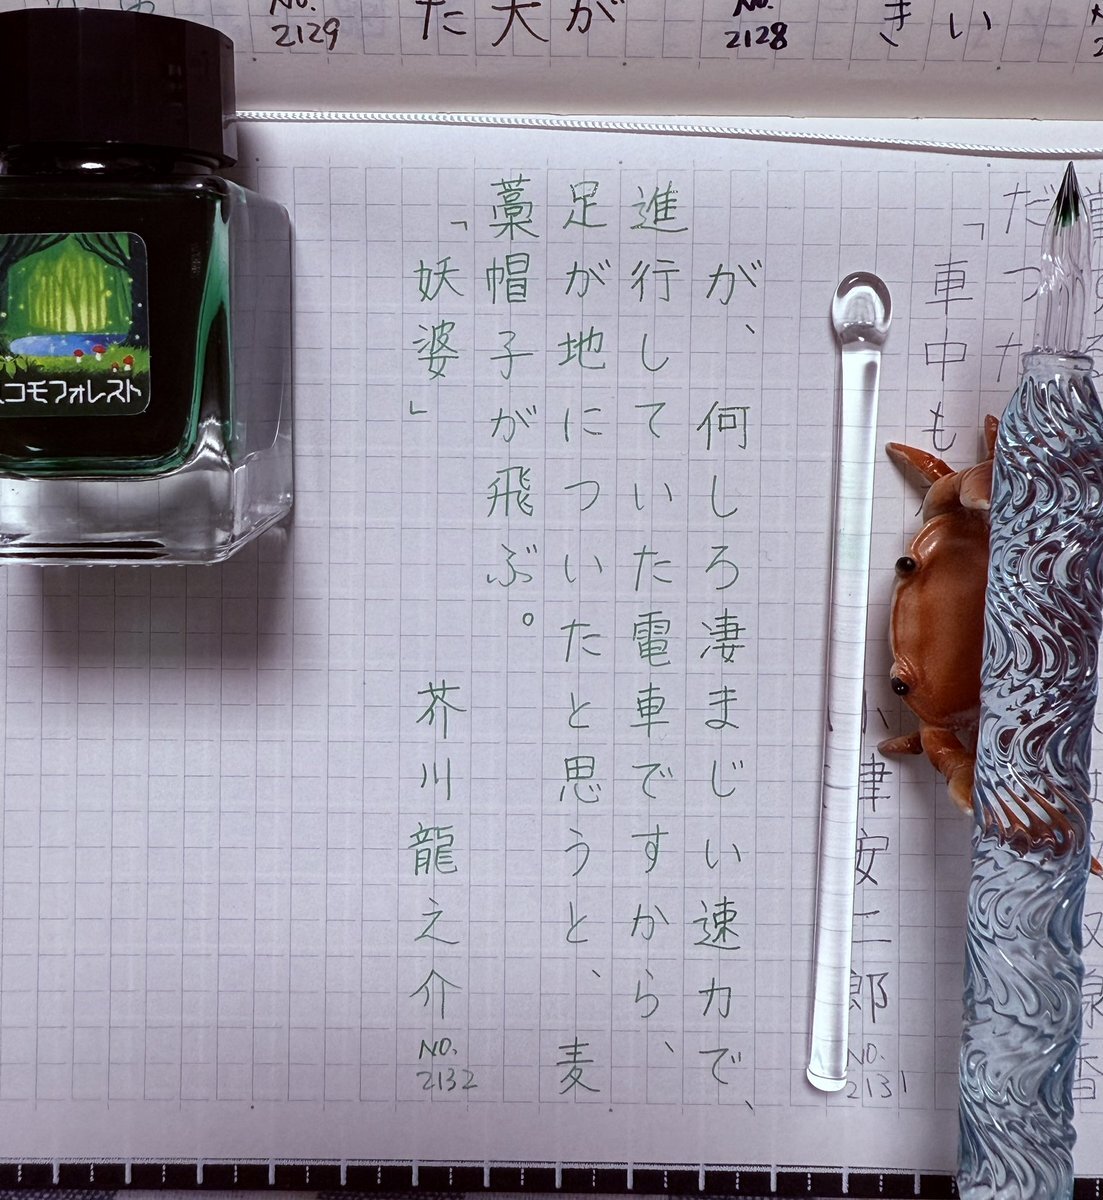 が、何しろ凄まじい速力で、
進行していた電車ですから、
足が地についいたと思うと、麦
藁帽子が飛ぶ。
「妖婆」 芥川龍之介
NO.
2132
だった
「車中も
小津安二郎
NO.
2131
きい
NO.
2128
た大が
NO.
2129
コモフォレスト